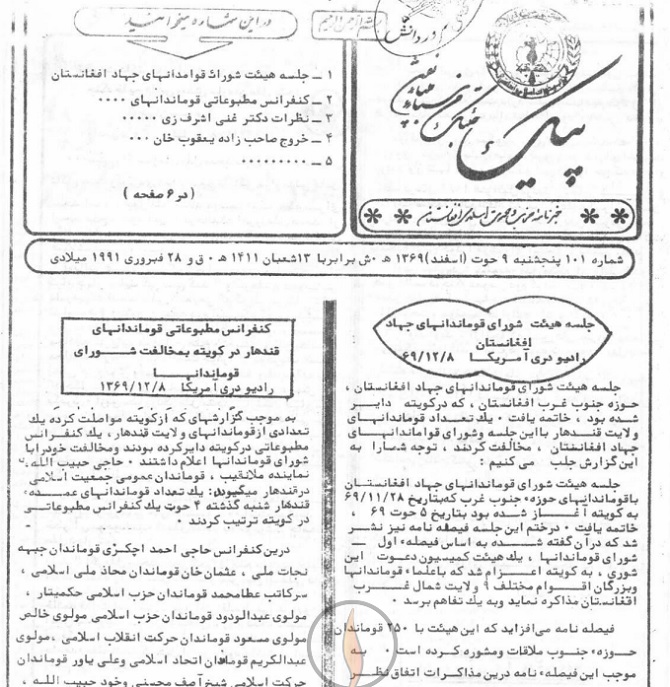 در این شماره میخوانید
۱ ــ جلسه هیئت شورای قوماندانهای جهاد افغانستان
۲ ــ کنفرانس مطبوعاتی قوماندانهای ۰۰۰۰
۳ ــ نظرات دکتر غنی اشرف زی ۰۰۰۰۰
۴ ــ خروج صاحب زاده یعقوب خان ۰۰۰
۵ ــ ۰۰۰۰۰۰۰۰۰
(در ۶ صفحه)
پیک
خبرنامه حزب وحدت اسلامی افغانستان
شماره ۱۰۱ پنجشنبه ۹ حوت (اسفند) ۱۳۶۹ ه ۰ش برابر با ۱۳ شعبان ۱۴۱۱ ه ۰ ق و ۲۸ فبروری ۱۹۹۱ میلادی
جلسه هیئت شورای قوماندانهای جهاد
افغانستان
رادیو دری آمریکا ۶۹/۱۲/۸
جلسه هیئت شورای قوماندانهای جهاد افغانستان ،
حوزه جنوب غرب افغانستان ، که درکویته دایر
شده بود ، خاتمه یافت ۰ یک تعداد قوماندانهای
ولایت قندهار با این جلسه وشورای قوماندانهای
جهاد افغانستان ، مخالفت کردند ، توجه شما را به
این گزارش جلب می کنیم :
جلسه هیئت شورای قوماندانهای جهاد افغانستان
باقوماندانهای حوزهء جنوب غرب که بتاریخ ۶۹/۱۱/۲۸
به کویته آغاز شده بود بتاریخ ۵ حوت ۶۹ ،
خاتمه یافت ۰ درختم این جلسه فیصله نامه نیز نشر
شد که در آن گفته شده به اساس فیصلهء اول ــ
شورای قوماندانها ، یک هیئت کمیسیون دعوت این
شوری ، به کویته اعزام شد که باعلما قوماندانها
وبزرگان اقوام مختلف ۹ ولایت شمال غرب
افغانستان مذاکره نماید وبه یک تفاهم برسد ۰
فیصله نامه می‌افزاید که این هیئت با ۲۵۰ قوماندان
حوزهء جنوب ملاقات ومشوره کرده است ۰ به
موجب این فیصلهء نامه درین مذاکرات اتفاق نظر
کنفرانس مطبوعاتی قوماندانهای
قندهار در کویته بمخالفت شورای
قوماندانها
رادیو دری آمریکا ۱۳۶۹/۱۲/۸
به موجب گزارشهای که ازکویته مواصلت کرده یک
تعدادی ازقوماندانهای ولایت قندهار ، یک کنفرانس
مطبوعاتی درکویته دایر کرده بودند ومخالفت خودرا با
شورای قوماندانها اعلام داشتند ۰ حاجی حبیب الله
نماینده ملانقیب ، قوماندان عمومی جمعیت اسلامی
درقندهار میگوید : یک تعداد قوماندانهای عمده
قندهار شنبه گذشته ۴ حوت یک کنفرانس مطبوعاتی
در کویته ترتیب کردند ۰
درین کنفرانس حاجی احمد اچکزی قوماندان جبهه
نجات ملی ، عثمان خان قوماندان محاذ ملی اسلامی ،
سرکاتب عطامحمد قوماندان حزب اسلامی حکمتیار ،
مولوی عبدالودود قوماندان حزب اسلامی مولوی خالص
مولوی مسعود قوماندان حرکت انقلاب اسلامی ، مولوی
عبدالکریم قوماندان اتحاد اسلامی وعلی یاور قوماندان
حرکت اسلامی شیخ آصف محسنی وخود حبیب الله ،